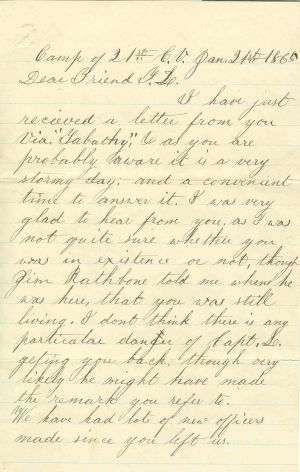 Camp of 21st C.V. Jan. 21st 1865
Dear Friend F. L.
I have just
recieved a letter from you
Via. "Tabathy", & as you are
probably aware it is a very
stormy day, and a convenient
time to answer it. I was very
glad to hear from you, as I was
not quite sure whether you
was in existence or not, though
Jim Rathbone told me where he
was here, that you was still
living. I dont think there is any
particular danger of Capt. L.
geting you back, though very
likely he might have made
the remark you refer to.
We have had lots of new officers
made since you left us.